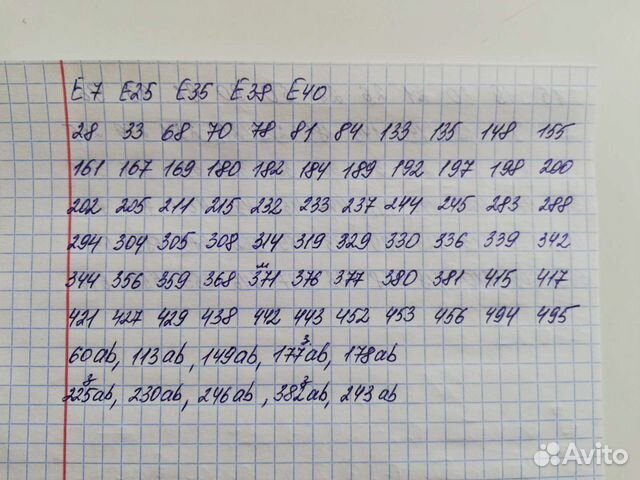 E7 E25 E35 E38 E40
28 33 68 70 78 81 84 133 135 148 155
161 167 169 180 182 184 189 192 197 198 200
202 205 211 215 232 233 237 244 245 283 288
294 304 305 308 314 319 329 330 336 339 342
344 356 359 368 371 376 377 380 381 415 417
421 427 429 438 442 443 452 453 456 494 495
60ab, 113ab, 149ab, 177ab, 178ab
225ab, 230ab, 246ab, 382ab, 243ab
Avito